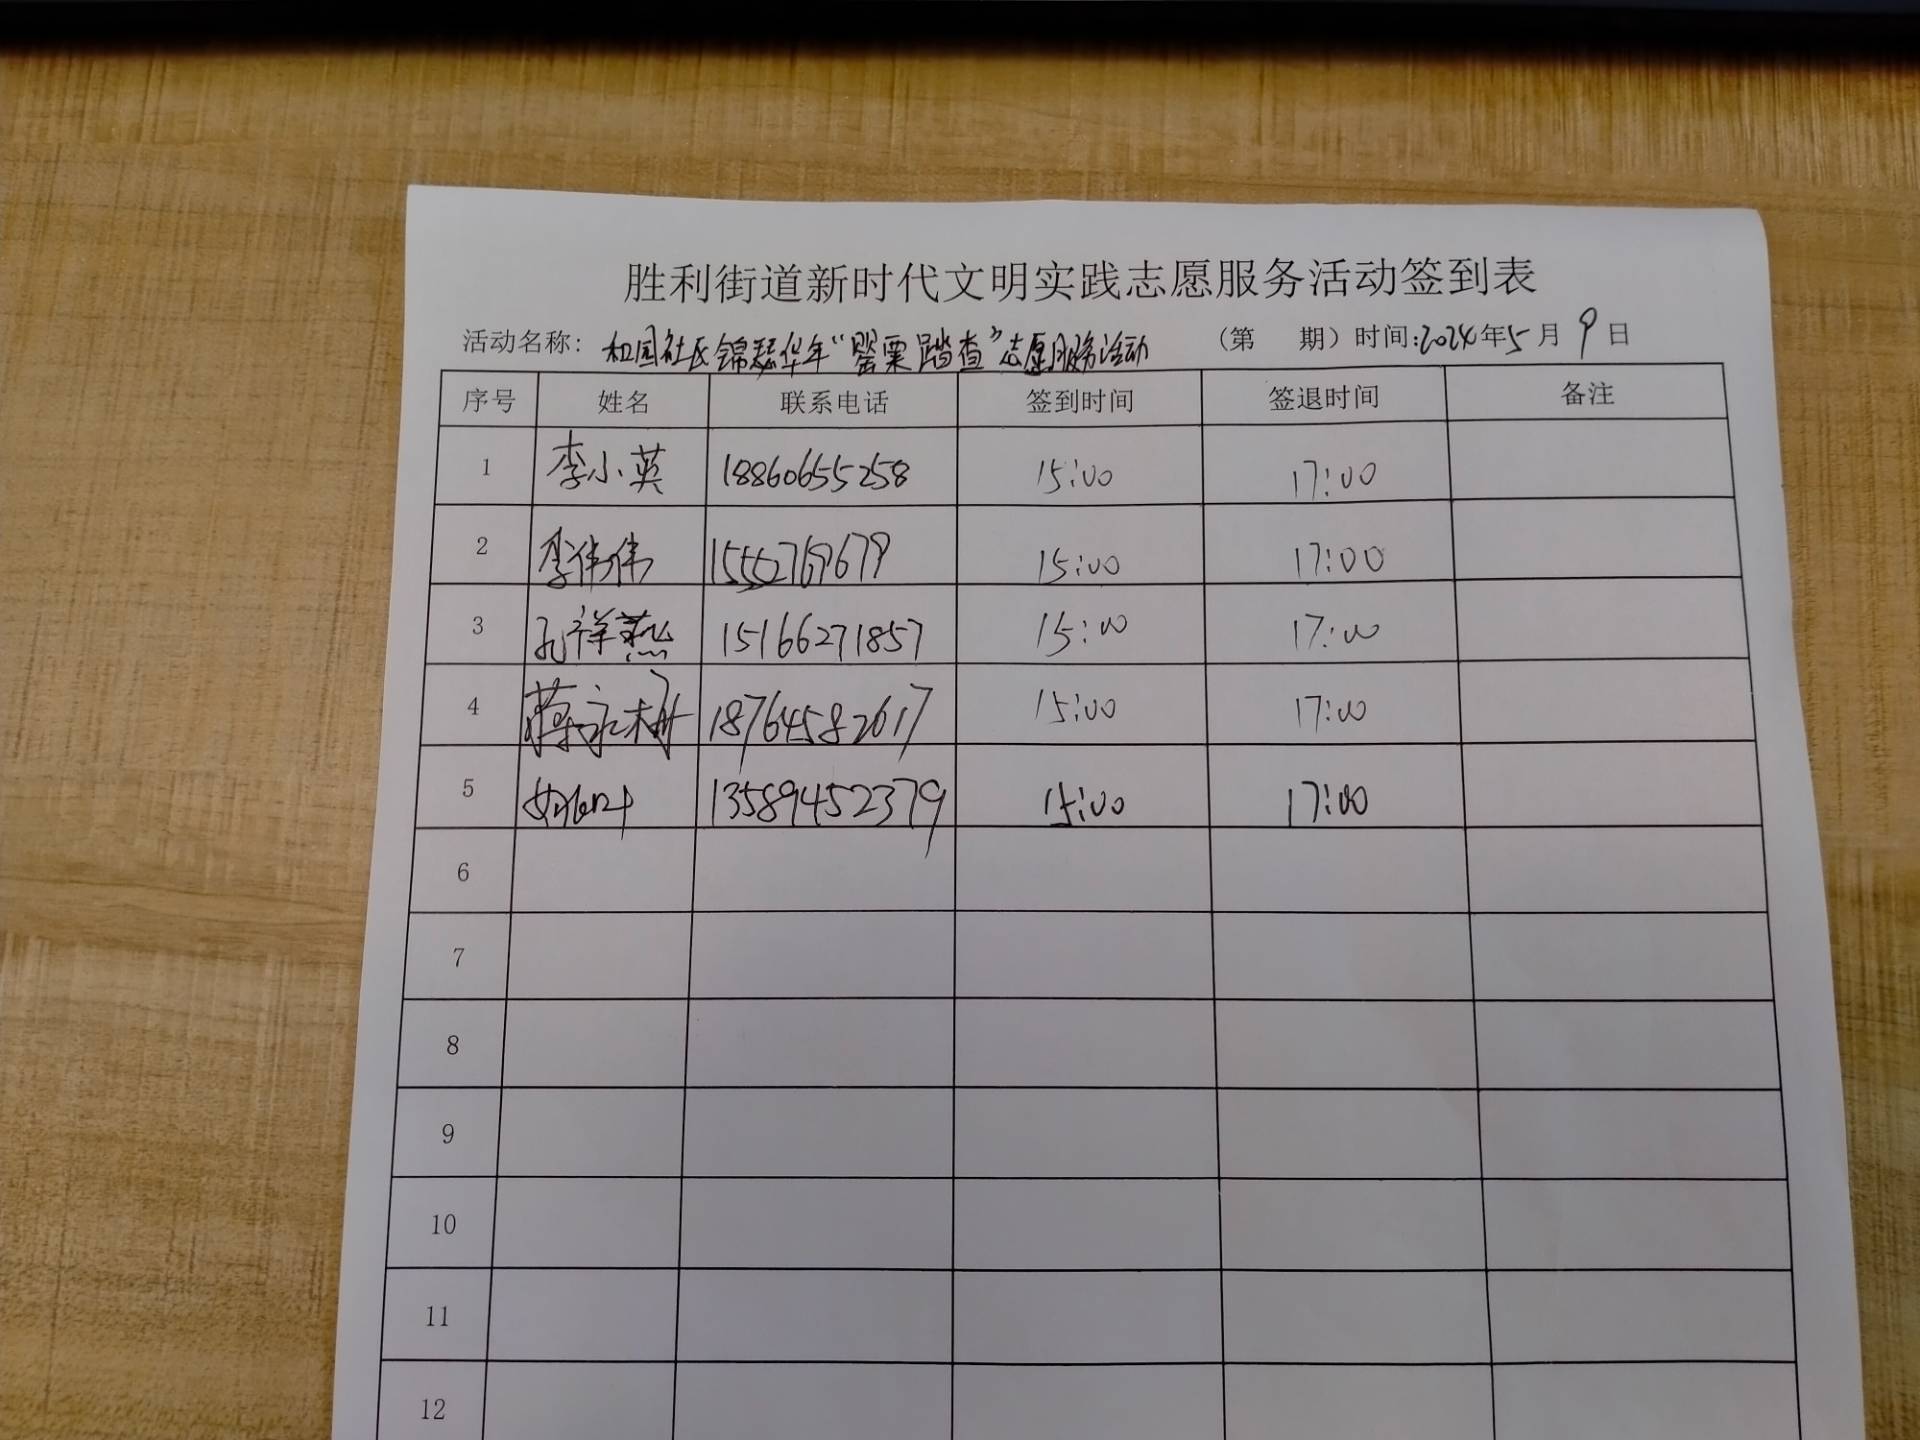 胜利街道新时代文明实践志愿服务活动签到表
活动名称: 和园社区锦瑟华年“罂粟踏查”志愿服务活动 (第 期) 时间:2024年5月9日
序号 姓名 联系电话 签到时间 签退时间 备注
1 李小英 18860655258 15:00 17:00
2 李伟伟 15:00 17:00
3 孔祥燕 15166271857 15:00 17:00
4 蒋永树 18764582617 15:00 17:00
5 13589452379 15:00 17:00
6
7
8
9
10
11
12